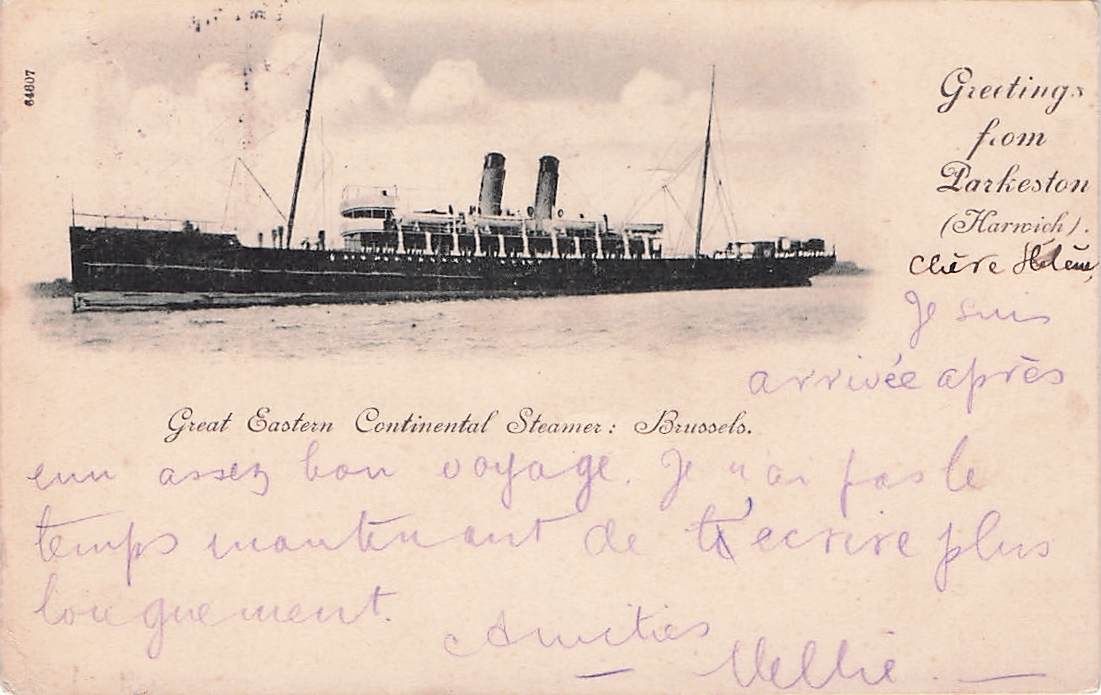 64807
Greetings
from
Parkeston
(Harwich).
Chère Hélène,
Je suis
arrivée après
Great Eastern Continental Steamer: Brussels.
un assez bon voyage. Je n'ai pas le
temps maintenant de t'écrire plus
longuement.
Amitiés
Nellie.